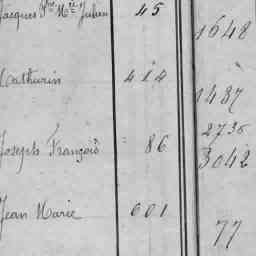 Jacques Pre Mie Julien 45
1648
Mathurin 414
1487
2736
Joseph François 86 3042
Jean Marie 601
77